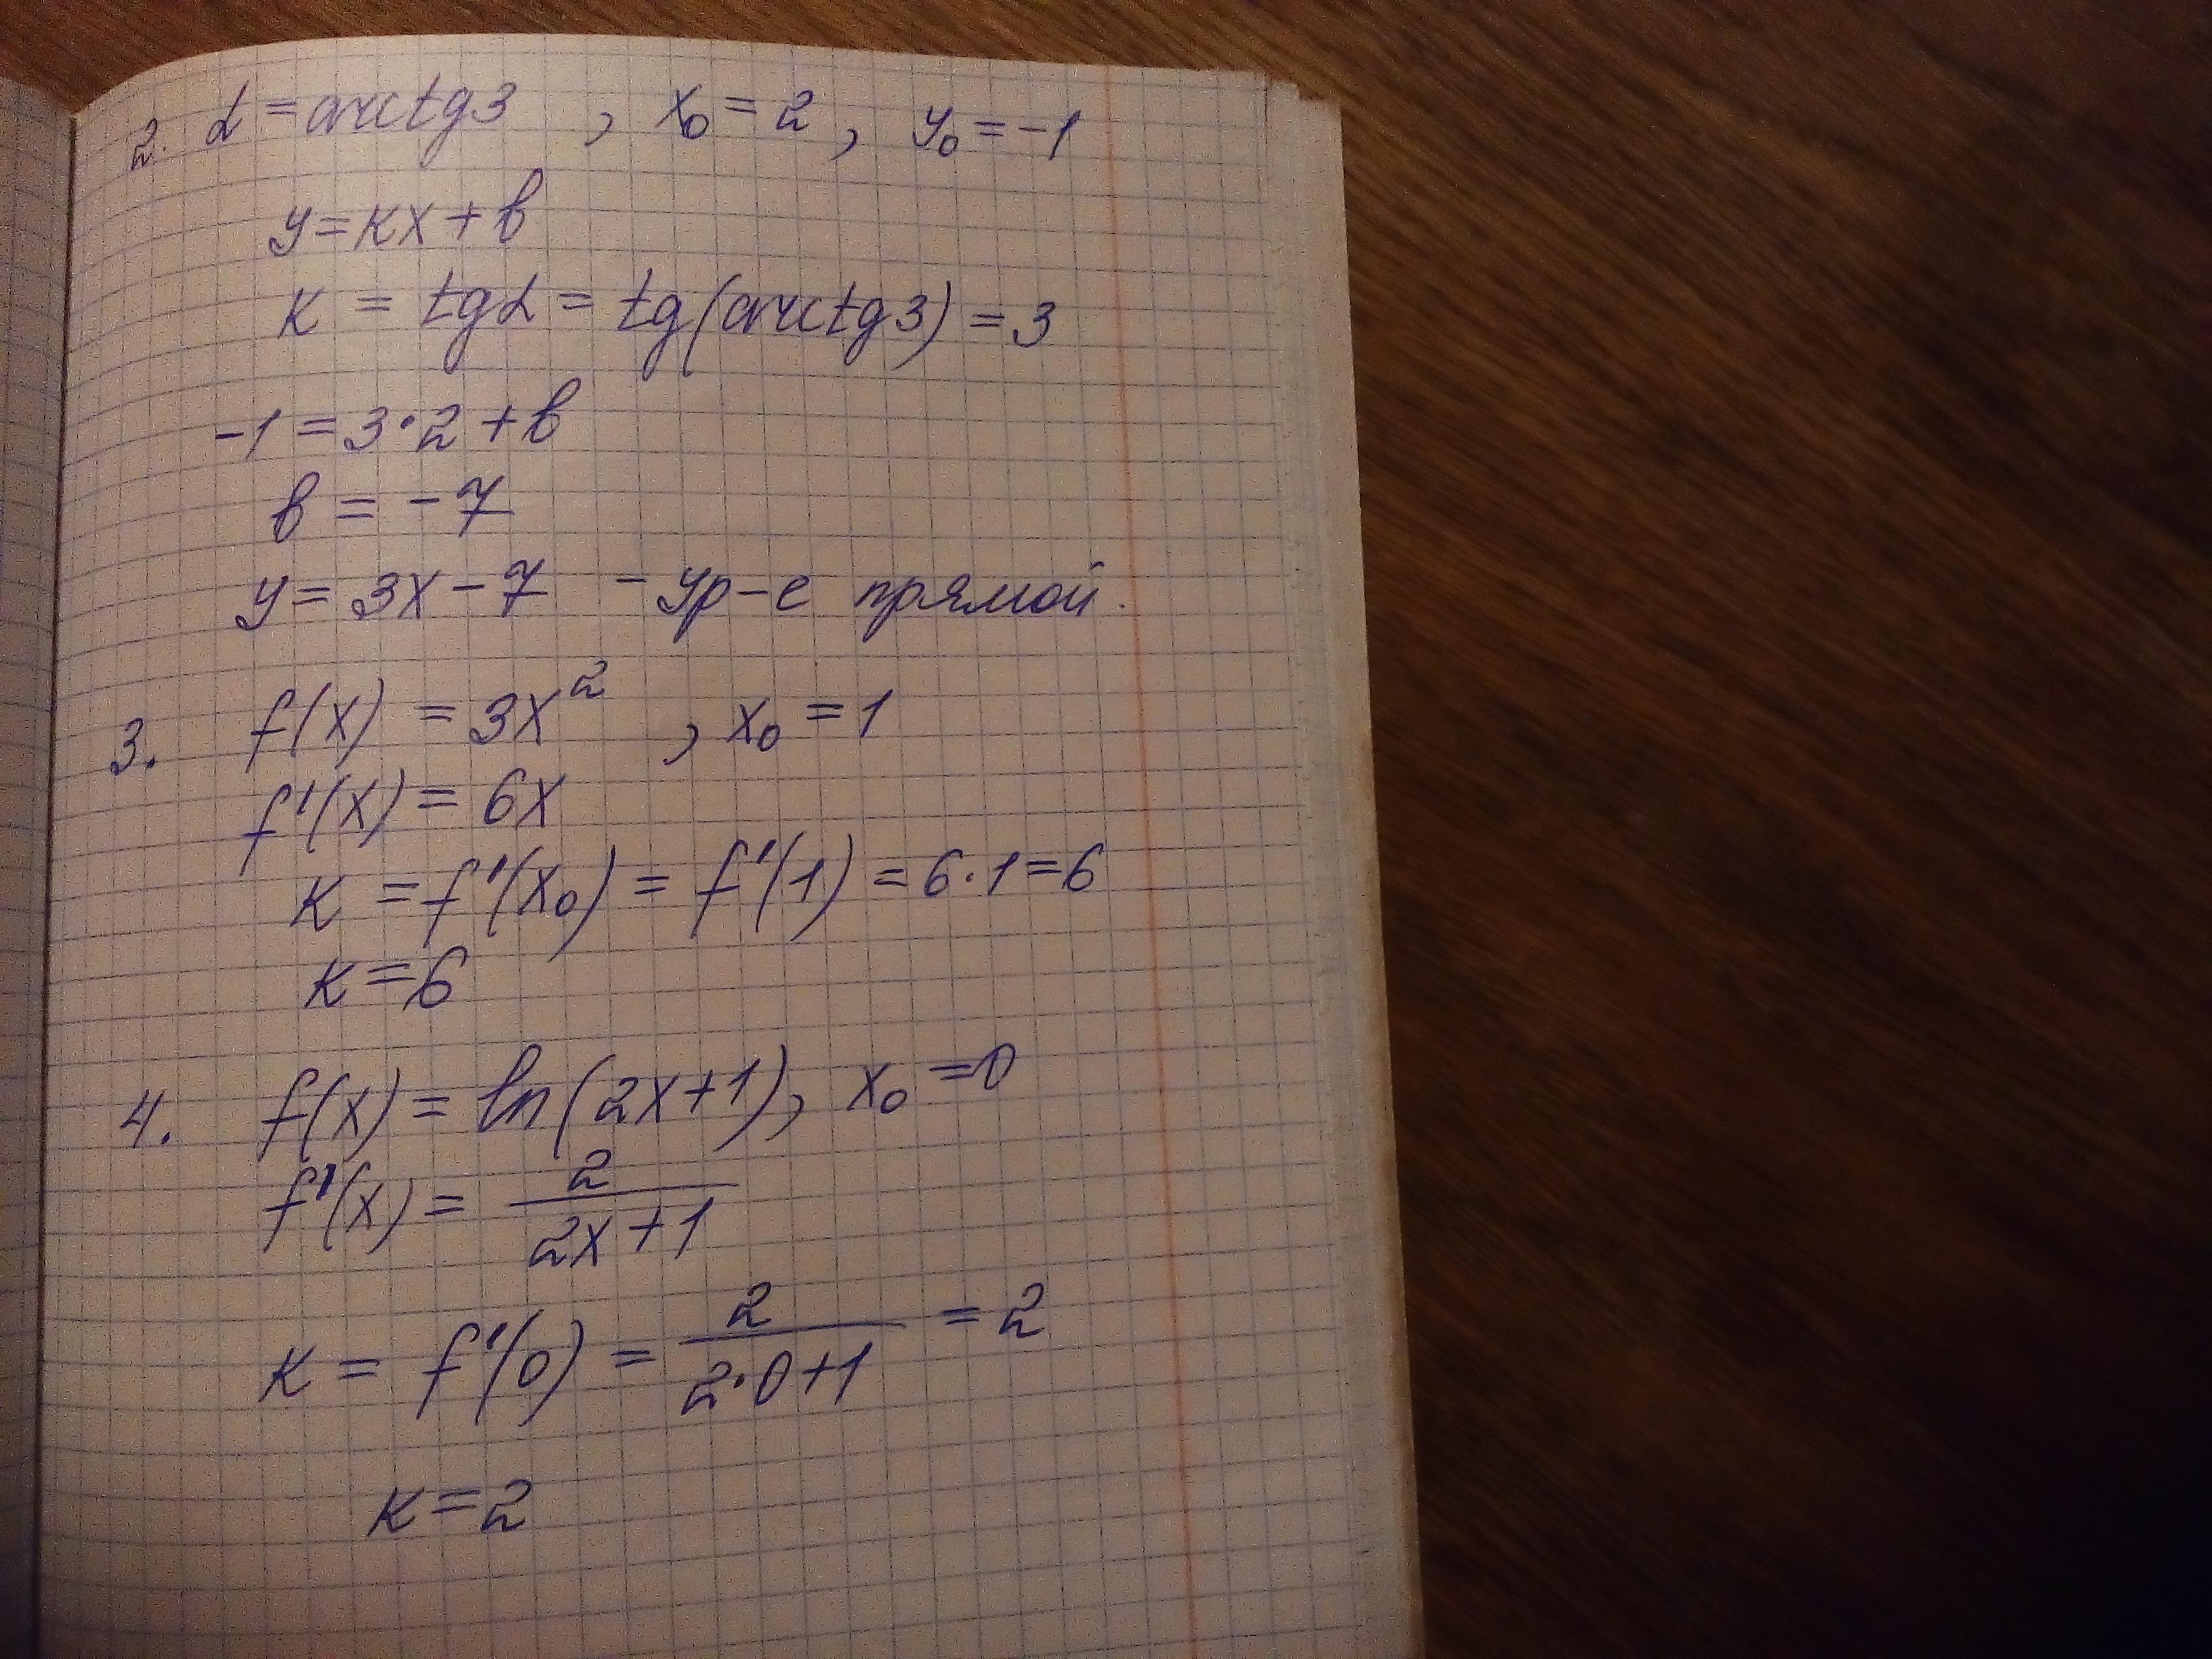 2. α = arctg3 , x₀ = 2 , y₀ = -1
y = kx + b
k = tgα = tg(arctg3) = 3
-1 = 3·2 + b
b = -7
y = 3x - 7 - ур-е прямой.
3. f(x) = 3x² , x₀ = 1
f'(x) = 6x
k = f'(x₀) = f'(1) = 6·1 = 6
k = 6
4. f(x) = ln(2x+1), x₀ = 0
f'(x) = 2/(2x+1)
k = f'(0) = 2/(2·0+1) = 2
k = 2